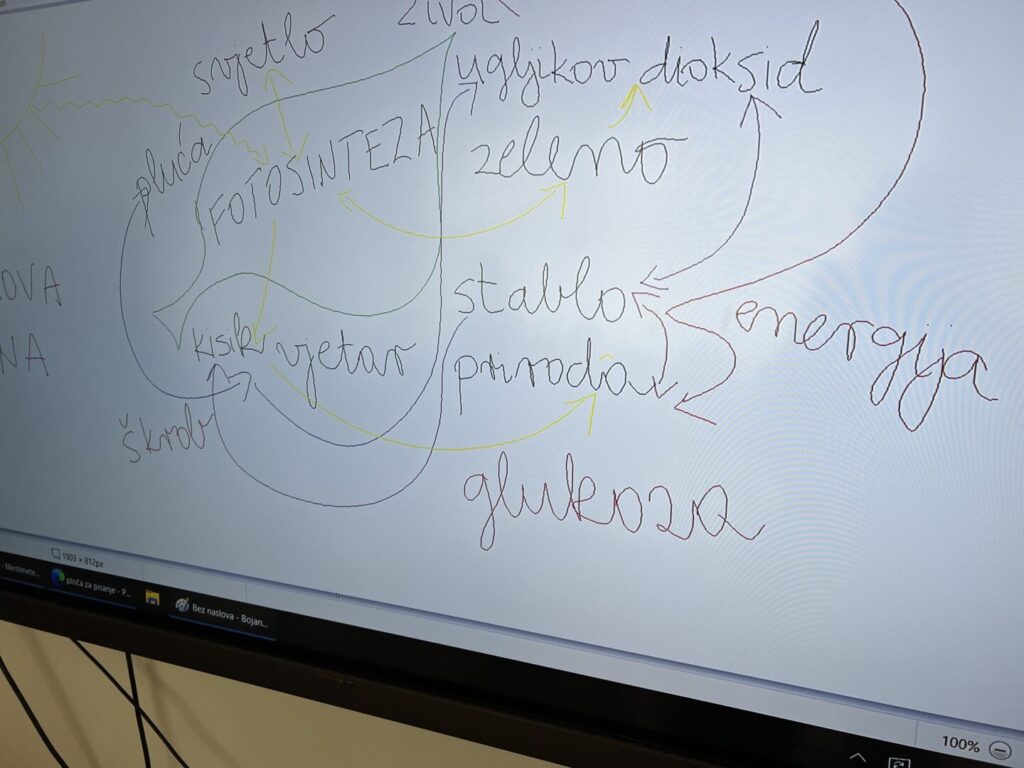 život
svjetlo
ugljikov dioksid
pluća
FOTOSINTEZA
zeleno
stablo
energija
kisik vjetar
priroda
škrob
glukoza
1903 × 812px
ploča za pisanje - P...
Bez naslova - Bojan...
100%